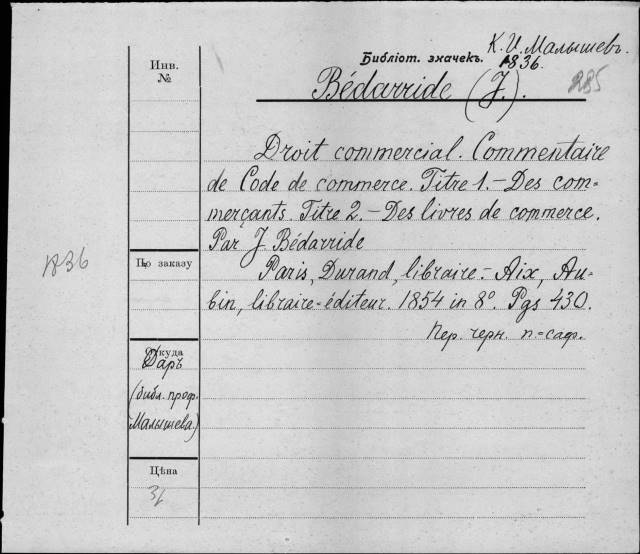 К. И. Малышевъ.
Инв.
№
Библіот. значекъ.
1836.
285
Bédarride (J.).
Droit commercial. Commentaire
de Code de commerce. Titre 1. – Des com=
merçants. Titre 2. – Des livres de commerce.
Par J. Bédarride
1836
По заказу
Paris, Durand, libraire. – Aix, Au=
bin, libraire-éditeur. 1854 in 8°. Pgs 430.
Пер. черн. п=саф.
Откуда
Даръ
(библ. проф.
Малышева)
Цѣна